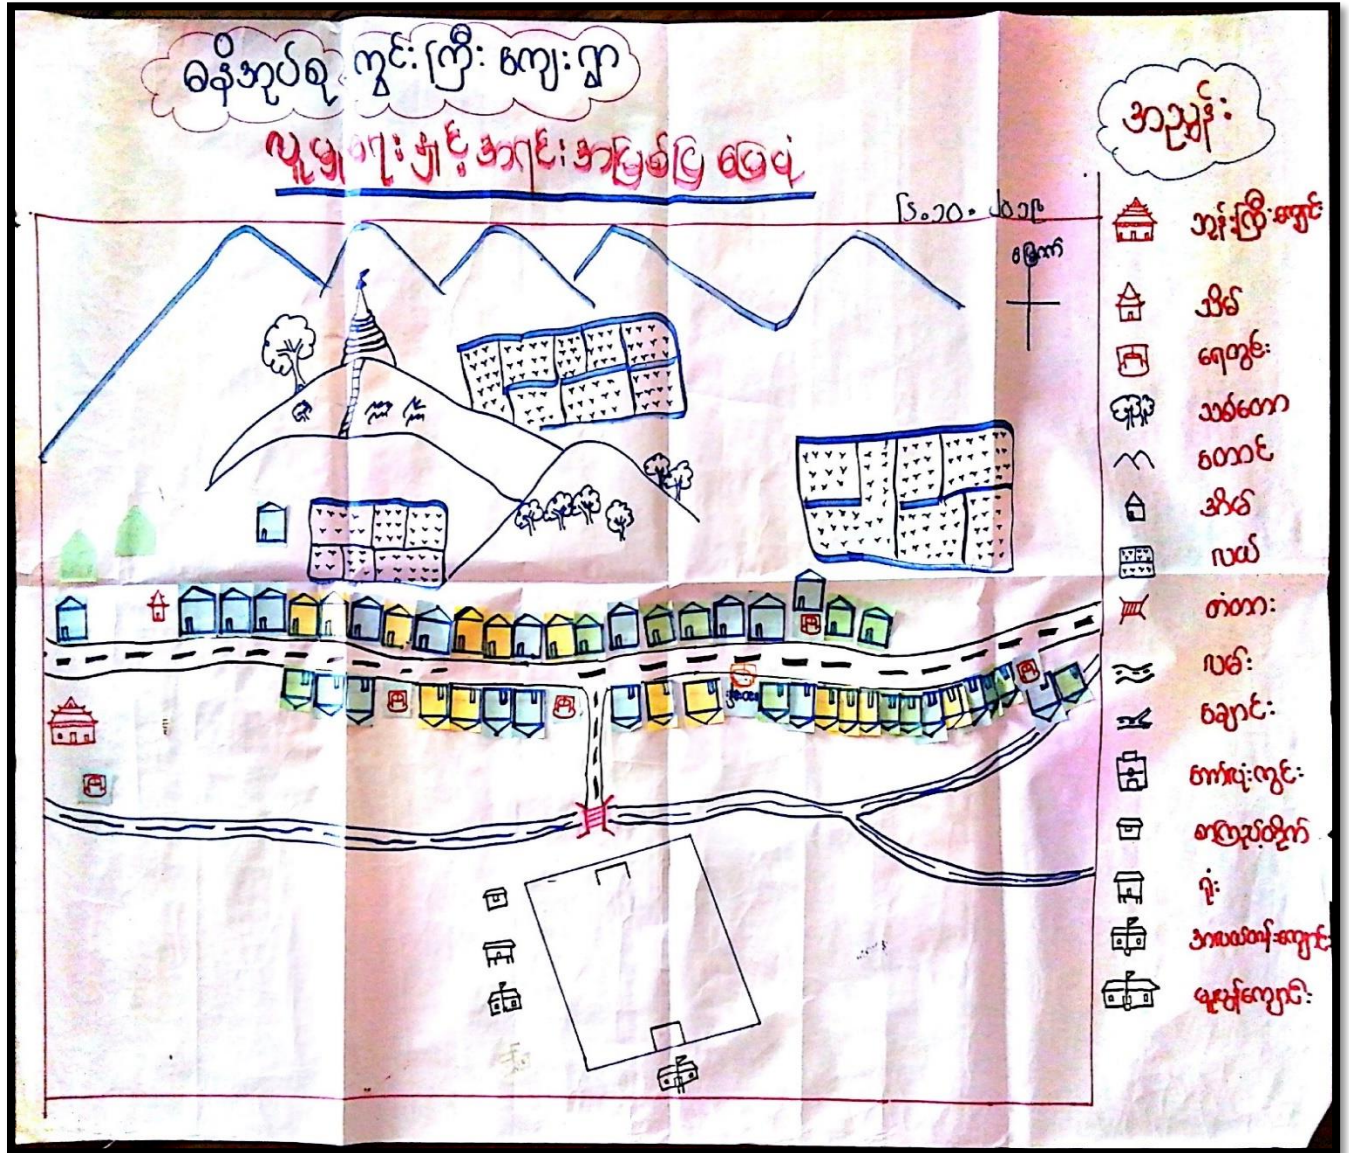 ဓနိအုပ်စု ကွင်းကြီး ကျေးရွာ
လူမှုရေးနှင့် အရင်းအမြစ်ပြ မြေပုံ
မြောက်
အညွှန်း
ဘုန်းကြီးကျောင်း
သိမ်
ရေတွင်း
သစ်တော
တောင်
အိမ်
လယ်
တံတား
လမ်း
ချောင်း
ဘောလုံးကွင်း
စာကြည့်တိုက်
ရုံး
အလယ်တန်းကျောင်း
မူလွန်ကျောင်း